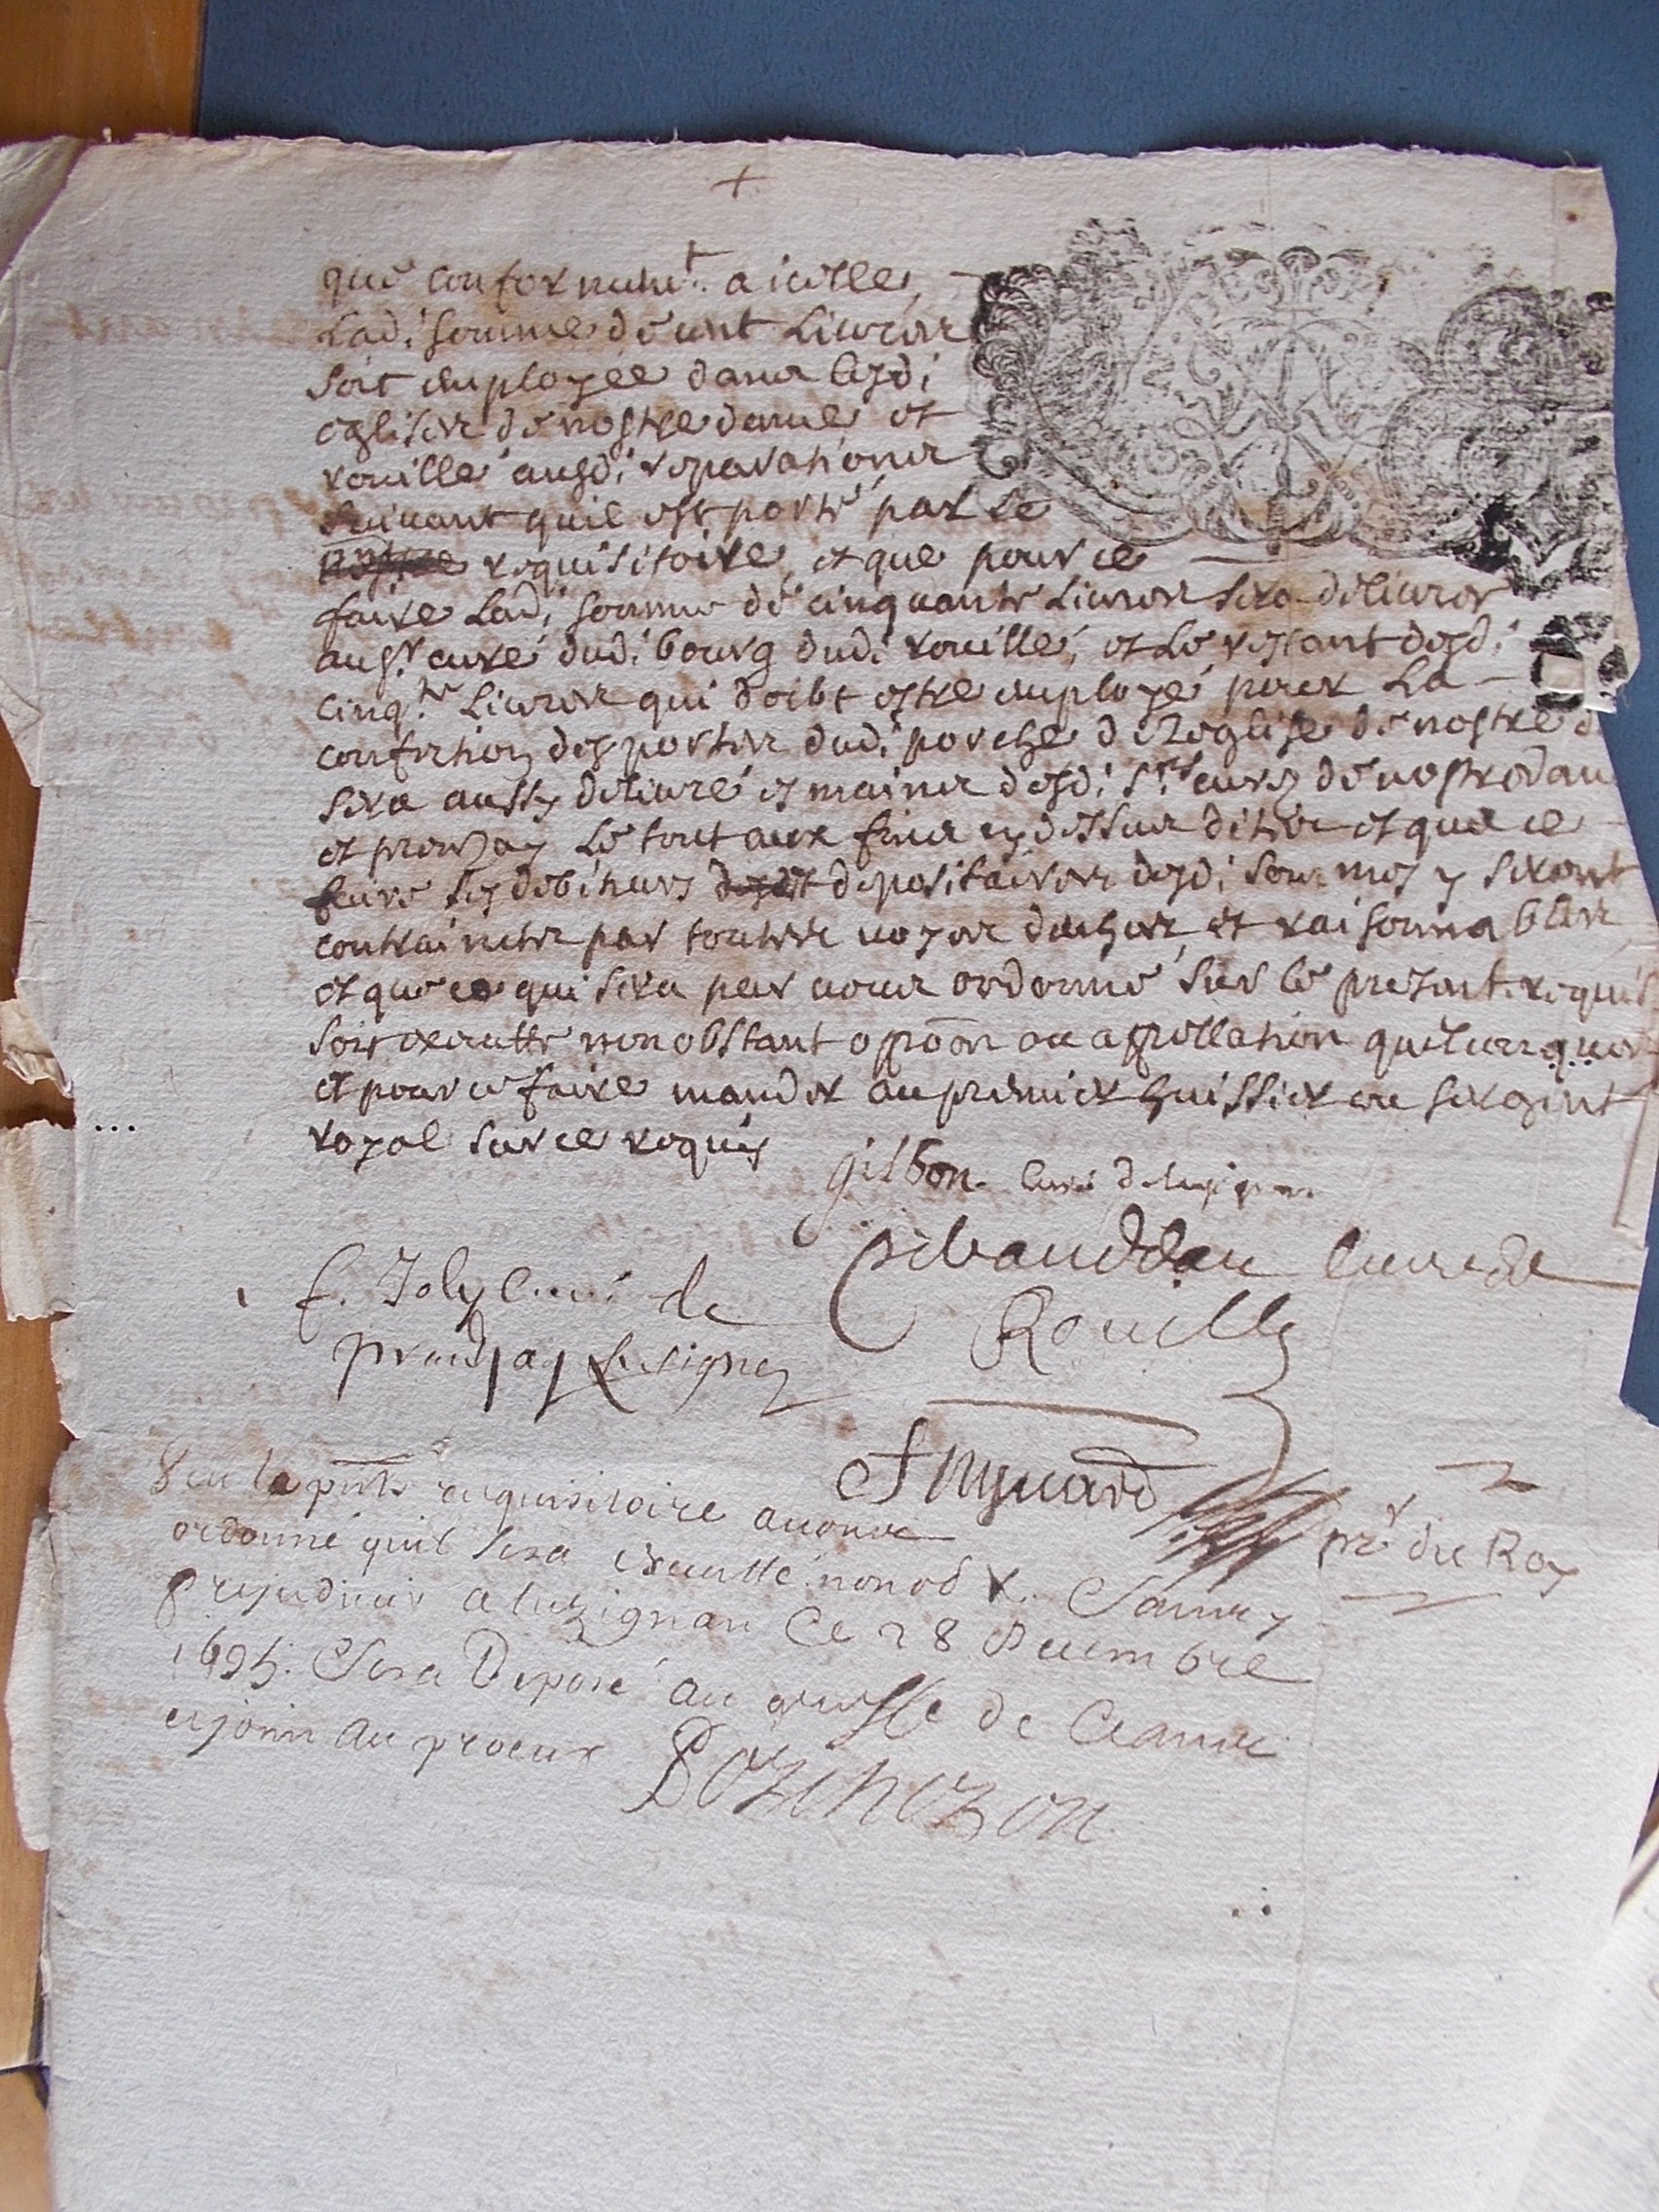 que conformemt. a icelle,
Lad. somme de cent Livres
soit employée dans lesd.
eglises de nostre dame et
rouillé ausd. reparations
suivant quil est porté par Le
requisitoire, et que pour ce
faire Lad. somme de cinquante Livres sera delivrer
aus.r curé dud. bourg dud. rouillé, et Le restant desd.
cinq.te Livres qui doibt estre employé pour La
confection des portes dud. porche de Leglise de nostre d
sera aussy delivré es mains desd. s.rs curez de nostredam
et prouzay Le tout aux fins cy dessus dites et qua ce
faire les debiteurs depositaires desd. sommes y seront
contraincts par toutes voyes deuhes, et raisonnables
et que ce qui sera par vous ordonné sur le present requis
soit executté nonobstant oppoōn ou appellation quelconques
et pour ce faire mander au premier huissier ou sergent
royal sur ce requis
gilbon curé de
curé de
Rouille
f. Joly Curé de
prouzay Lusignen
pr.r du Roy
Veu le pnt requisitoire avons
ordonné quil sera executté nonob
prejudice a luzignan Ce 28 decembre
Sera Deposé au greffe de Ceans